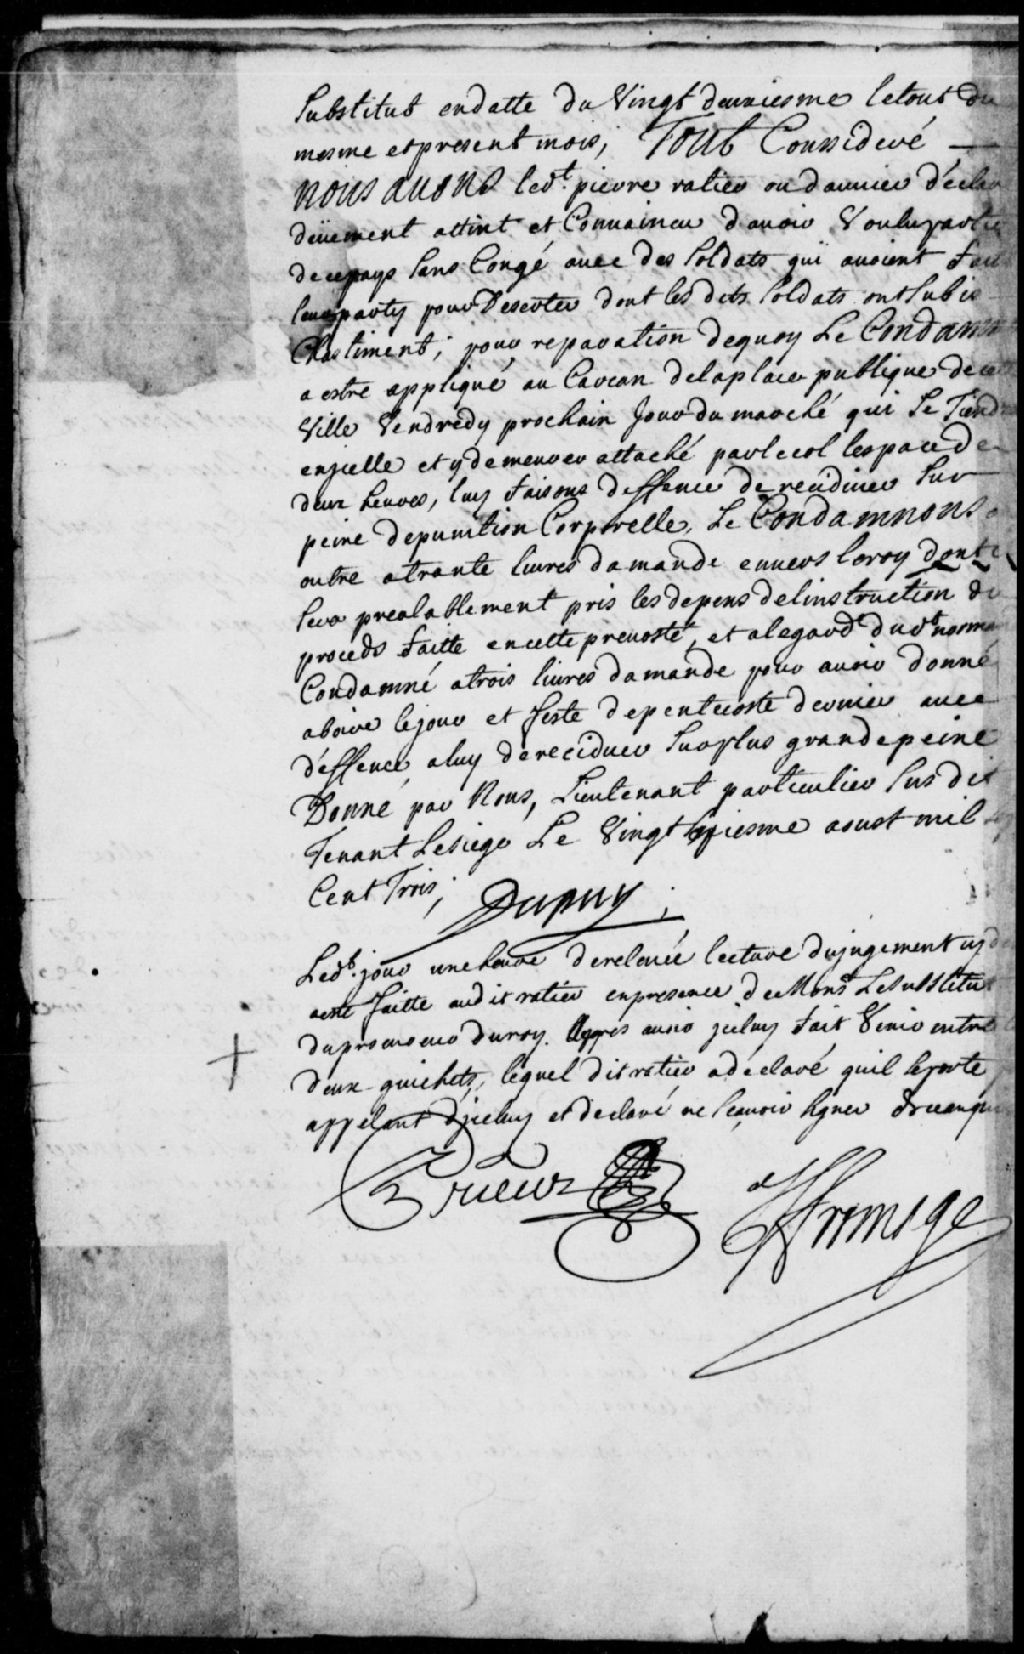 substitut endatte du Vingt deuxiesme letout du
mesme et present mois, Tout Consideré —
nous auons led.t pierre ratier ou daunier déclar
deuement attint et Conuaincu d'auoir Voulu partir
de ce pays sans Congé auec des soldats qui auoient fait
leur party pour Deserter dont les dits soldats ont subis
Chastiment; pour reparation dequoy Le Condamn
a estre appliqué au Carcan delaplace publique de cett
Ville Vendredy prochain Jour du marché qui se Tiendr
enjcelle et y demeurer attaché par le col lespace de
deux heures, luy faisons deffence de reciduier sur
peine depunition Corporelle, Le Condamnons
outre atrante liures damande enuers leroy dont
sera prealablement pris les depens delinstruction du
proceds faitte encette preuosté, et alegard dud.t norman
Condamné atrois liures damande pour auoir donné
aboire lejour et feste depentecoste dernier auec
déffence aluy derecidiuer surplus grande peine
Donné par Nous, Lieutenant particulier sus dit
Tenant Lesiege Le Vingt aoust mil
Cent Trois; Dupuy
Led.t jour une heure dereleuée lecture dujugement cy d
aesté faitte audit ratier enpresence de Mons.r Lesubstitut
duprocureur duroy. Apprés auoir jceluy fait Venir entre l
deux guichets, lequel dit ratier adéclaré quil seporte
appelant djceluy et declaré ne scauoir signer de cenquis
Prieur Hfromage